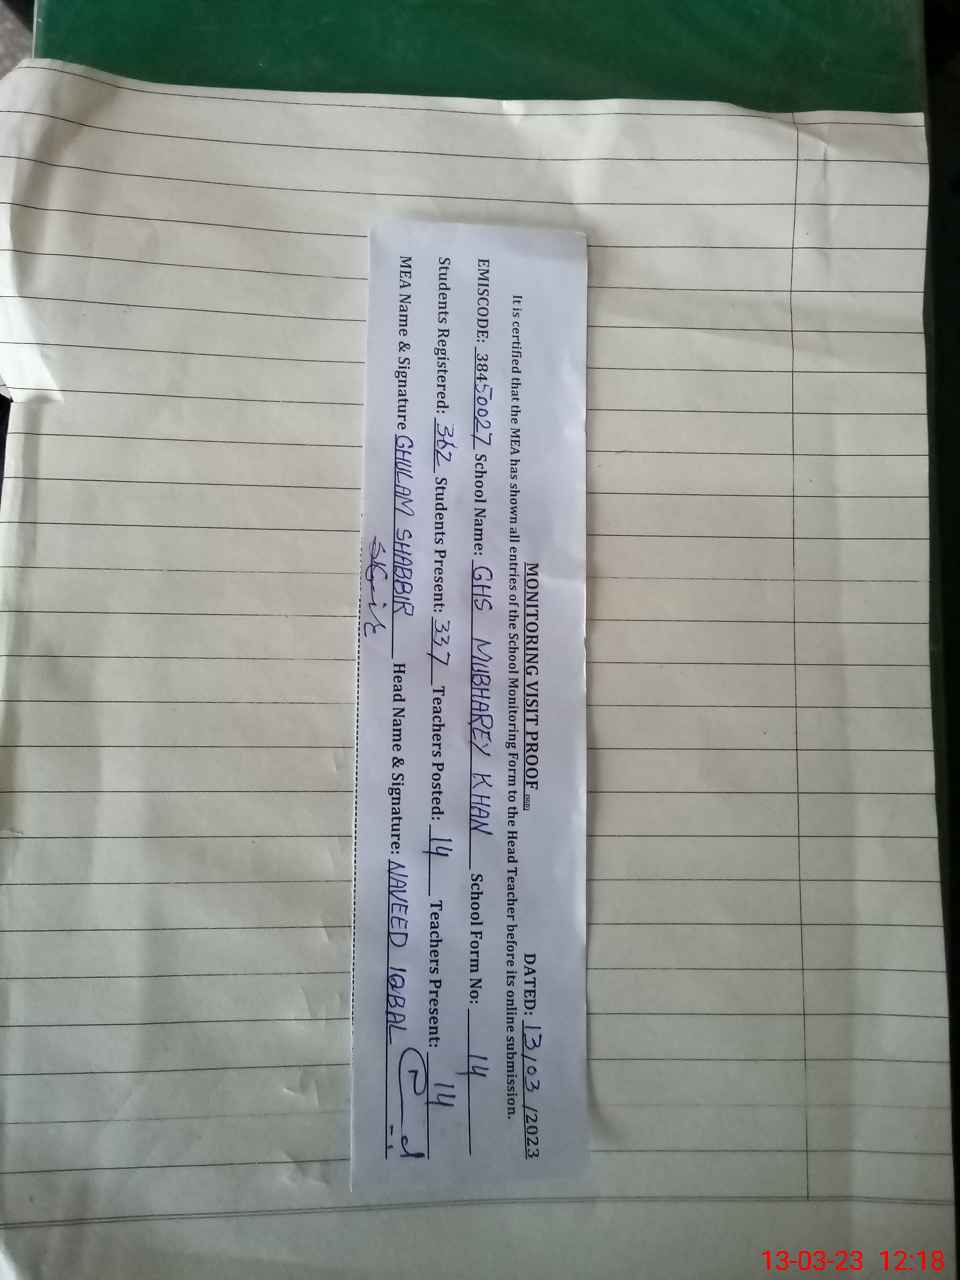 MONITORING VISIT PROOF DATED: 13/03/2023
It is certified that the MEA has shown all entries of the School Monitoring Form to the Head Teacher before its online submission.
EMISCODE: 38450027 School Name: GHS MUBHAREY KHAN School Form No: 14
Students Registered: 362 Students Present: 337 Teachers Posted: 14 Teachers Present: 14
MEA Name & Signature GHULAM SHABBIR Head Name & Signature: NAVEED IQBAL
13-03-23 12:18